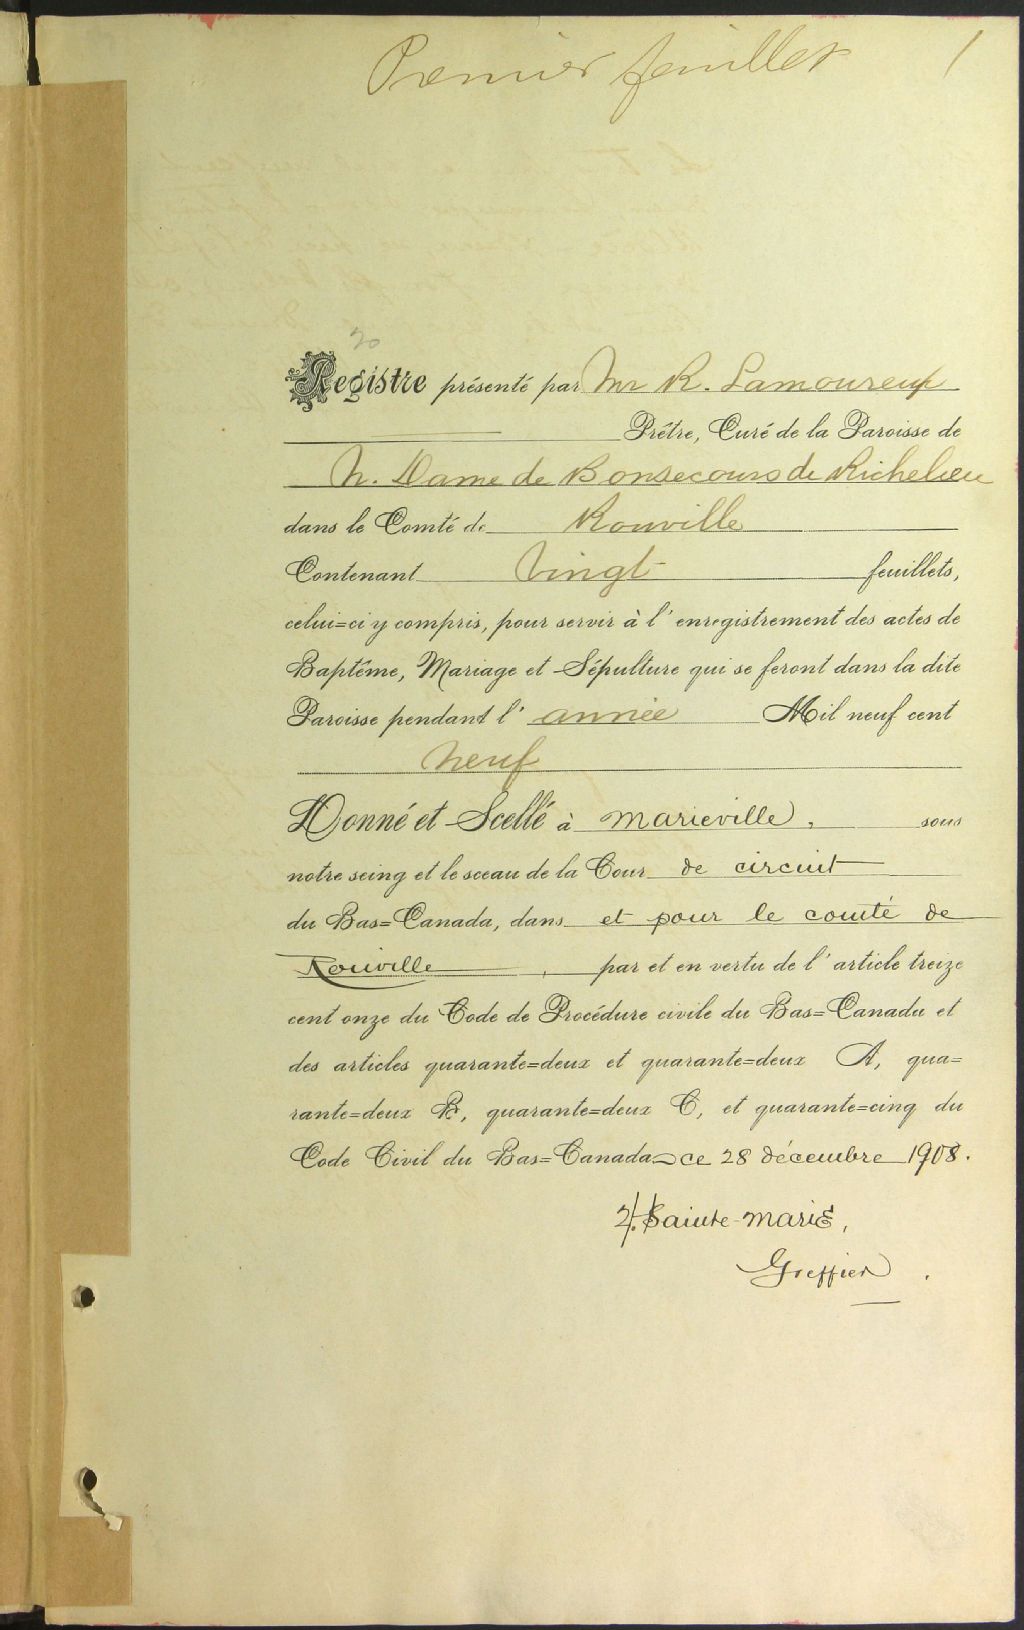 Premier feuillet 1
20
Registre présenté par Mr R. Lamoureux
Prêtre, Curé de la Paroisse de
N. Dame de Bonsecours de Richelieu
dans le Comté de Rouville
Contenant Vingt feuillets,
celui=ci y compris, pour servir à l'enregistrement des actes de
Baptême, Mariage et Sépulture qui se feront dans la dite
Paroisse pendant l'année Mil neuf cent
neuf
Donné et Scellé à Marieville, sous
notre seing et le sceau de la Cour de circuit
du Bas=Canada, dans et pour le comté de
Rouville, par et en vertu de l'article treize
cent onze du Code de Procédure civile du Bas=Canada et
des articles quarante=deux et quarante=deux A, qua=
rante=deux B, quarante=deux C, et quarante=cinq du
Code Civil du Bas=Canada ce 28 décembre 1908.
Sainte-Marie,
Greffier.